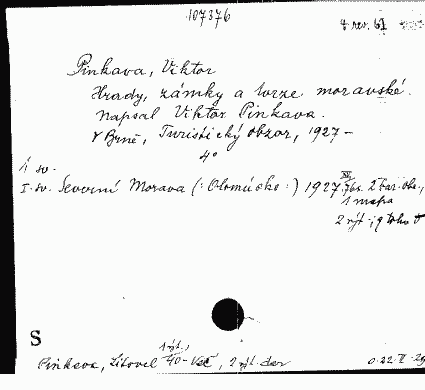 107376
rev. 61
Pinkava, Viktor
Hrady, zámky a tvrze moravské.
Napsal Viktor Pinkava.
V Brně, Turistický obzor, 1927 –
4°
1 sv.
I. sv. Severní Morava (: Olomúcko :) 1927. 2 bar. obr.,
1 mapa
S
Pinkava, Litovel 40-